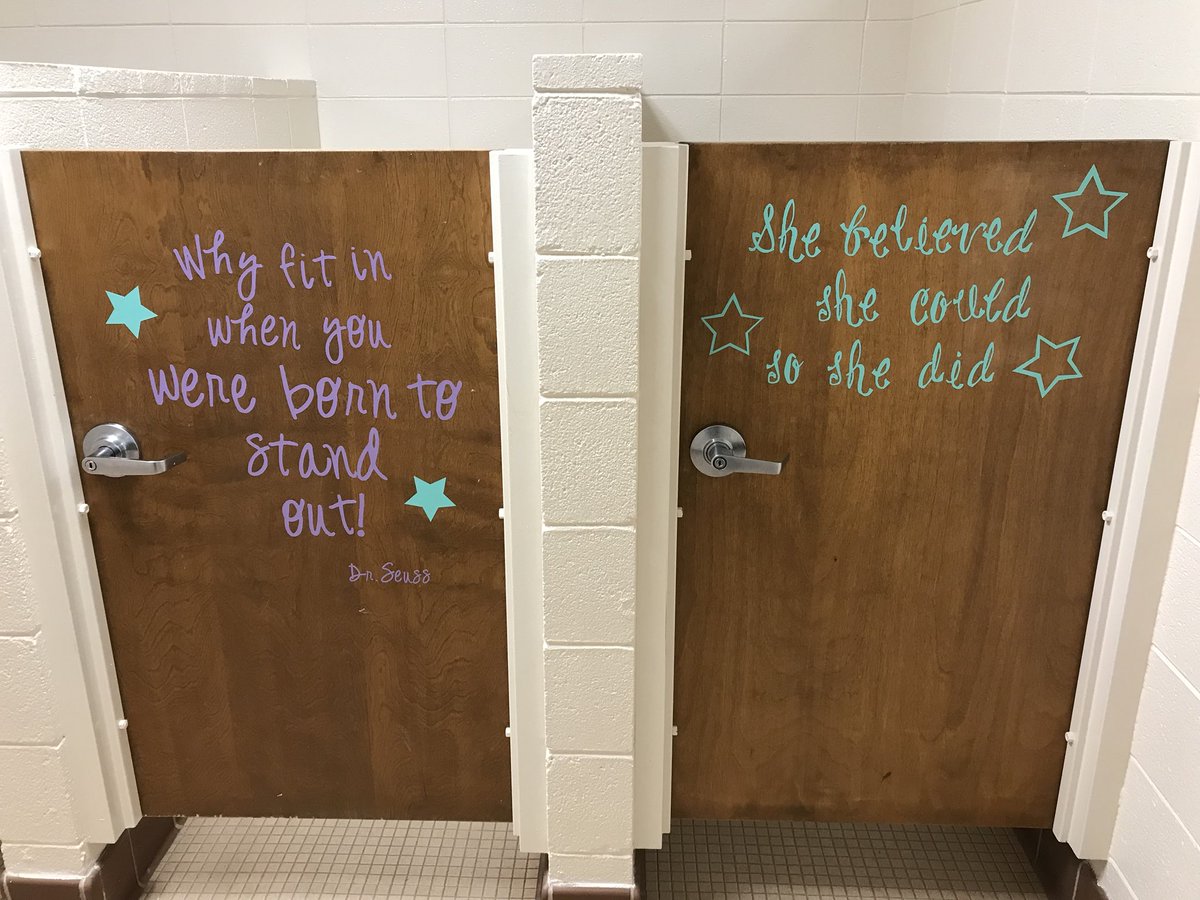 Why fit in
when you
were born to
stand
out!
Dr. Seuss
She believed
she could
so she did